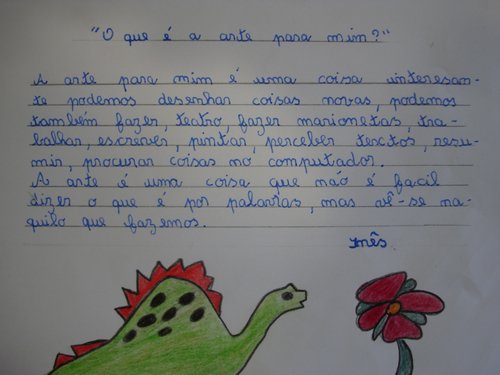 "O que é a arte para mim?"
A arte para mim é uma coisa interesan-
te podemos desenhar coisas novas, podemos
também fazer, teatro, fazer marionetas, tra-
balhar, escrever, pintar, perceber textos, resu-
mir, procurar coisas no computador.
A arte é uma coisa que não é facil
dizer o que é por palavras, mas vê-se na-
quilo que fazemos.
Inês